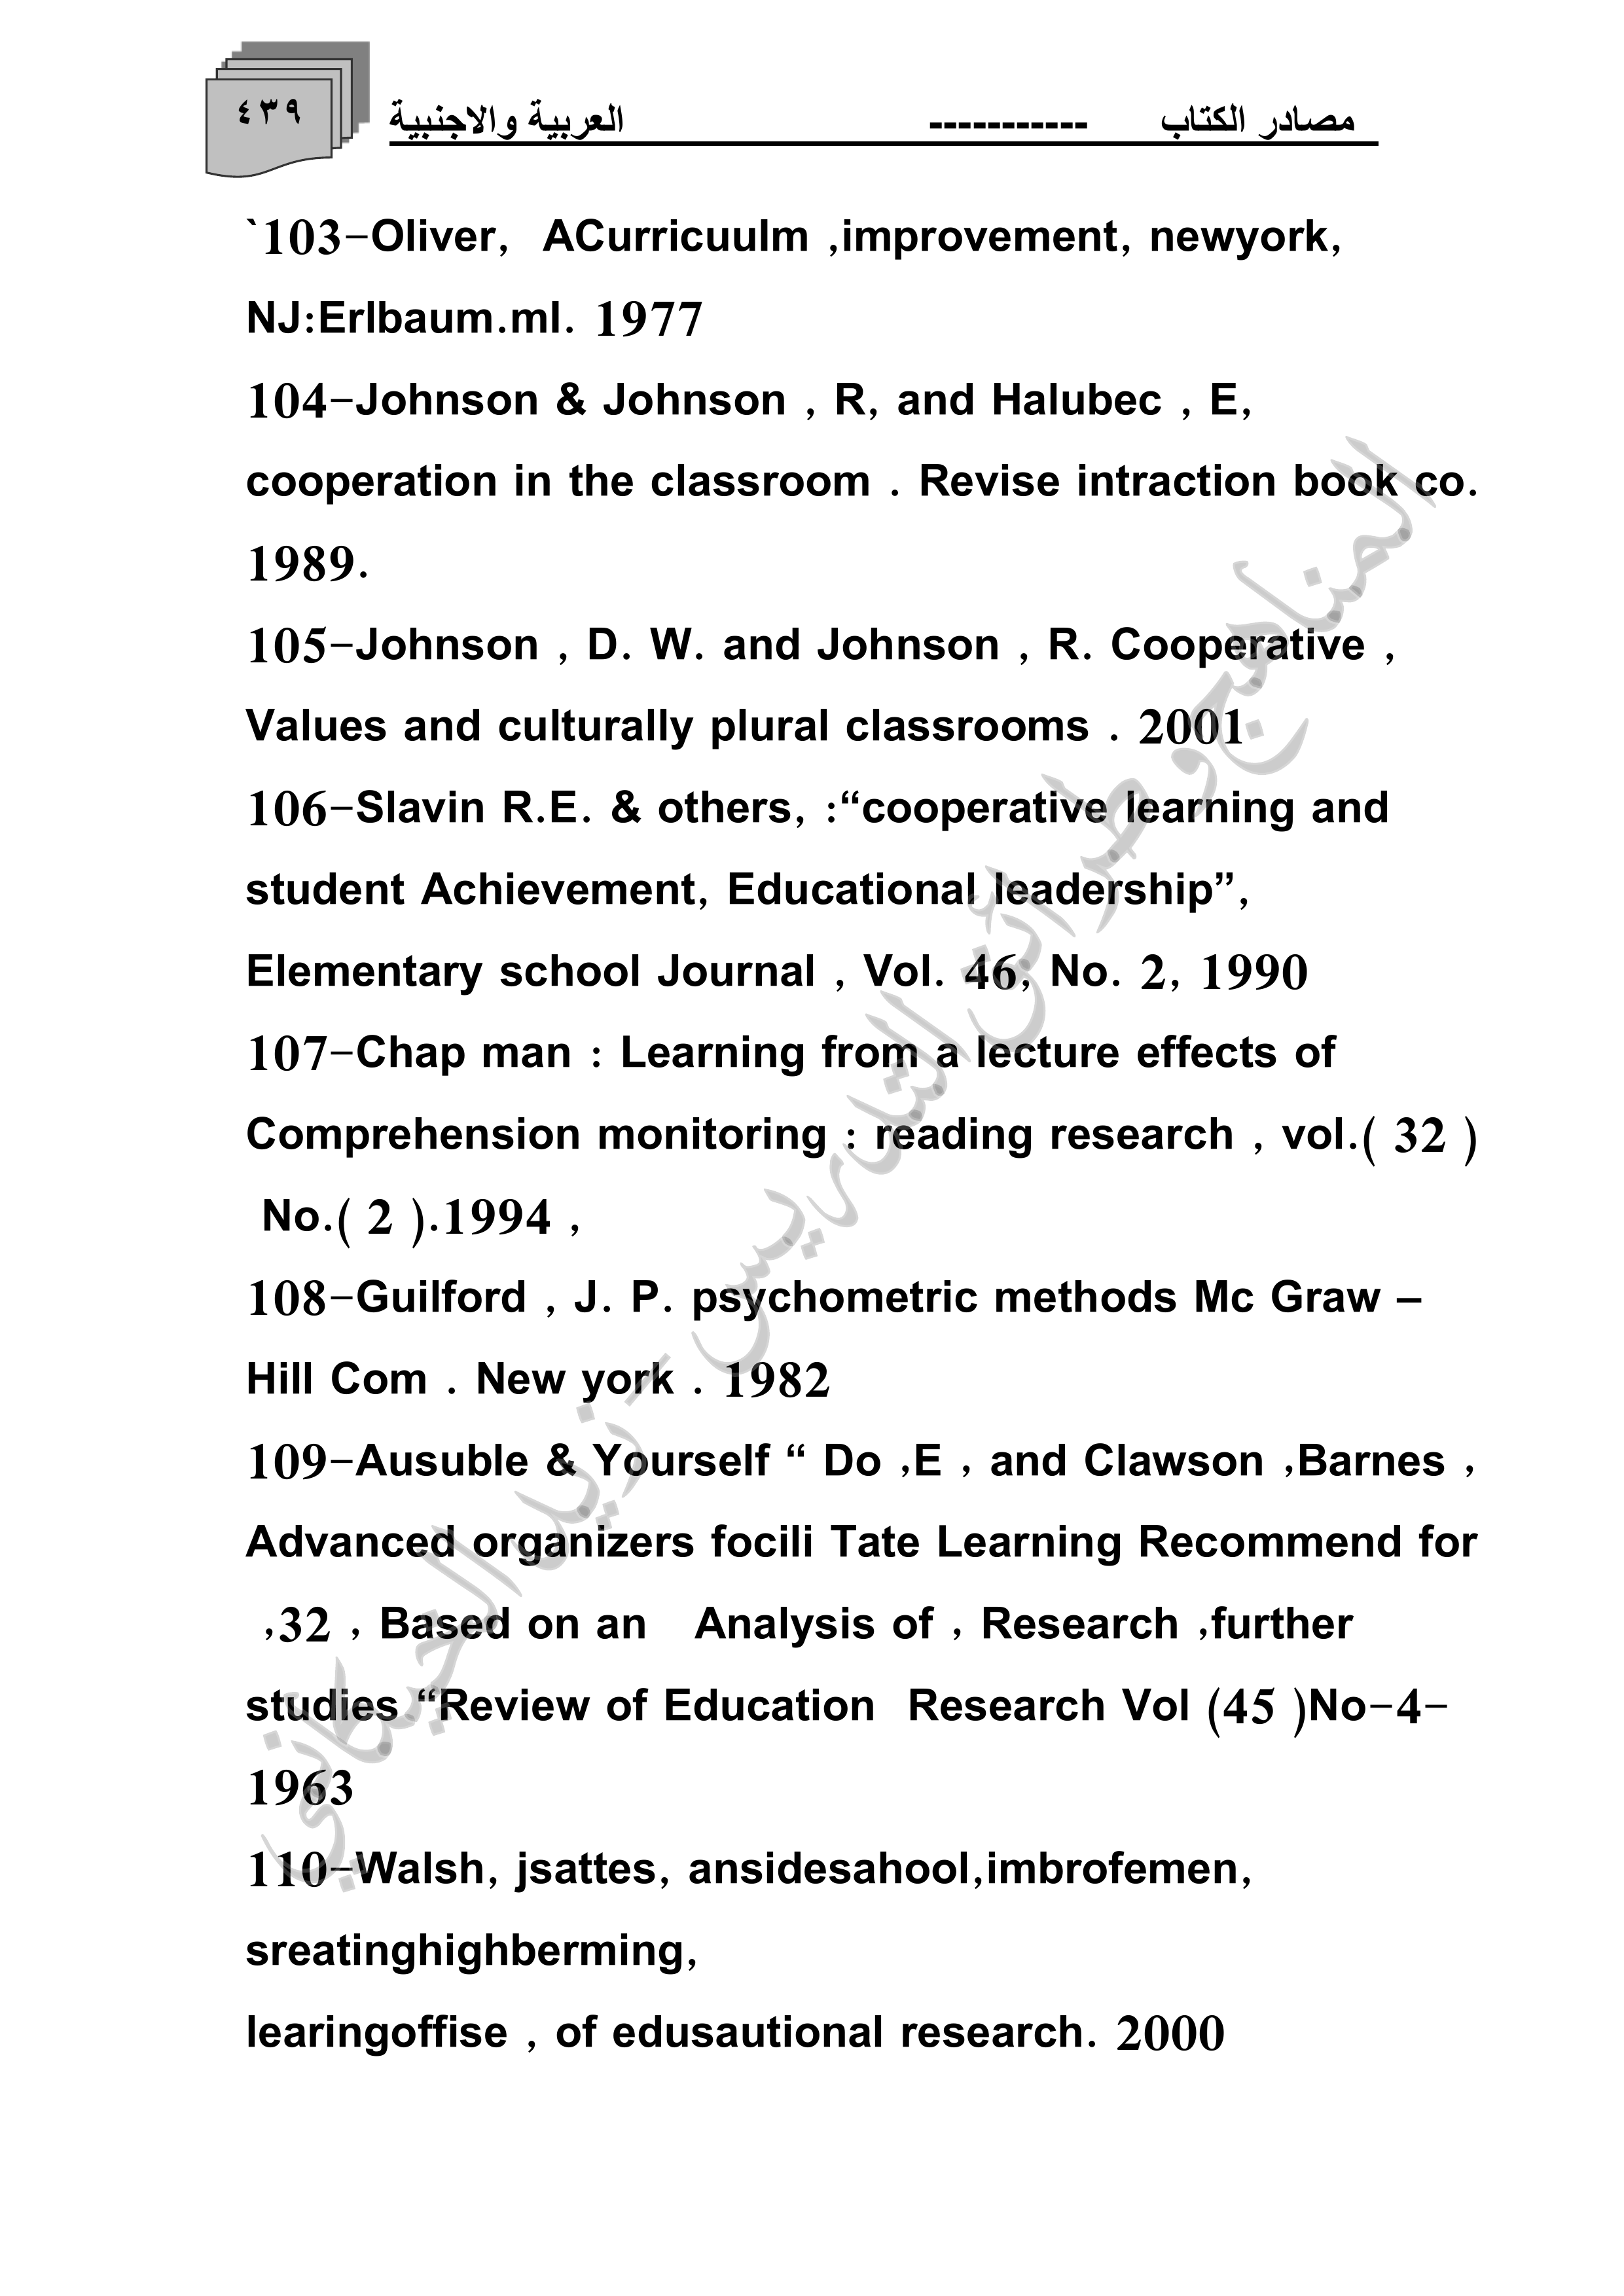 مصادر الكتاب ----------- العربية والاجنبية
٤٣٩
`103-Oliver, ACurricuulm ,improvement, newyork,
NJ:Erlbaum.ml. 1977
104-Johnson & Johnson , R, and Halubec , E,
cooperation in the classroom . Revise intraction book co.
1989.
105-Johnson , D. W. and Johnson , R. Cooperative ,
Values and culturally plural classrooms . 2001
106-Slavin R.E. & others, :“cooperative learning and
student Achievement, Educational leadership”,
Elementary school Journal , Vol. 46, No. 2, 1990
107-Chap man : Learning from a lecture effects of
Comprehension monitoring : reading research , vol.( 32 )
No.( 2 ).1994 ,
108-Guilford , J. P. psychometric methods Mc Graw –
Hill Com . New york . 1982
109-Ausuble & Yourself “ Do ,E , and Clawson ,Barnes ,
Advanced organizers focili Tate Learning Recommend for
,32 , Based on an Analysis of , Research ,further
studies “Review of Education Research Vol (45 )No-4-
1963
110-Walsh, jsattes, ansidesahool,imbrofemen,
sreatinghighberming,
learingoffise , of edusautional research. 2000
المناهج وطرائق التدريس - زيد الخيكاني